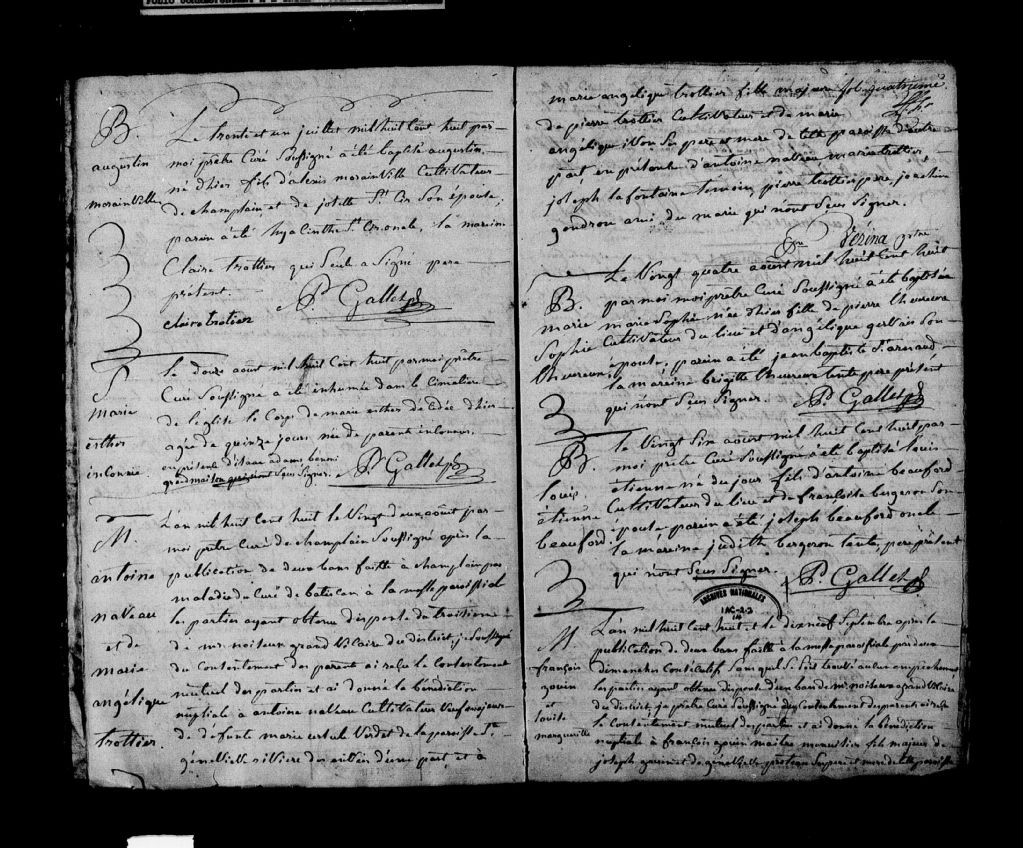 B.
augustin
morainville
Le trente et un juillet mil huit cent huit par
moi prêtre Curé Soussigné a été baptisé augustin
né d'hier fils d'alexis morainville Cultivateur
de champlain et de St. Cir Son épouse,
parain a été hyacinthe St. Cir oncle, la mareine
Claire trottier qui Seule a Signé pere
présent.
P. Gallet ptre
claire trotier
S
marie
esther
inconnue
le douze aout mil huit Cent huit par moi prêtre
Curé Soussigné a été inhumée dans le Cimetiere
de l'eglise le Corps de marie esther décédée d'hier
agée de quinze jours née de parents inconnus,
en présence d'isaac adams benoni
grandmaison qui n'ont Seus Signer.
P. Gallet ptre
M.
antoine
naveau
et de
marie
angélique
trottier.
L'an mil huit Cent huit le Vingt deux août par
moi prêtre Curé de champlain Soussigné après la
publication de deux bans faitte à champlain par
maladie du Curé de batiscan à la messe paroissial
les parties ayant obtenu dispense du troisieme
de mr. noiseux grand Vicaire du district, je Soussigné
du Consentement des parents ai reçu le Consentement
mutuel des parties et ai donné la bénédiction
nuptiale à antoine naveau Cultivateur Veuf majeur
de defunte marie ursule Verdet de la paroisse Ste
généviève riviere des d'une part, et à
marie angélique trottier fille majeure quatrieme
de pierre trottier Cultivateur et de marie
angélique Son pere et mere de cette paroisse d'autre
part en présence d'antoine naveau marin trottier
joseph lafontaine témoins, pierre trottier pere, joachim
gondron ami du marié qui n'ont Seus Signer.
B.
marie
Sophie
l'heureux
Le Vingt quatre aout mil huit Cent huit
par moi moi prêtre Curé Soussigné a été baptisée
marie Sophie née d'hier fille de pierre l'heureux
Cultivateur du lieu et d'angélique gervais Son
épouse, parain a été jean baptiste St arnaud,
la mareine brigitte l'heureux tante pere présent
qui n'ont Seus Signer.
P. Gallet ptre
B.
louis
étienne
beauford.
le Vingt Six aout mil huit Cent huit par
moi prêtre Curé Soussigné a été baptisé louis
étienne né du jour fils d'antoine beauford
Cultivateur du lieu et de françoise bergeron Son
épouse parain a été joseph beauford oncle
la mareine judith bergeron tante, pere présent
qui n'ont Seus Signer.
P. Gallet ptre
ARCHIVES NATIONALES
M
françois
gouin
et
louise
L'an mil huit Cent huit, et le dix neuf Septembre après la
publication de deux bans faitte à la messe paroissiale par deux
dimanches Consécutifs Sans qu'il Se Soit trouvé aucun empechement
les parties ayant obtenu dispense d'un ban de mr noiseux grand Vicaire
du district, je prêtre Curé Soussigné du Consentement des parents ai reçu
le Consentement mutuel des parties et ai donné la bénédiction
nuptiale à françois gouin maître menuisier fils majeur de
joseph gouin et de généviève Ses pere et mere de cette paroisse